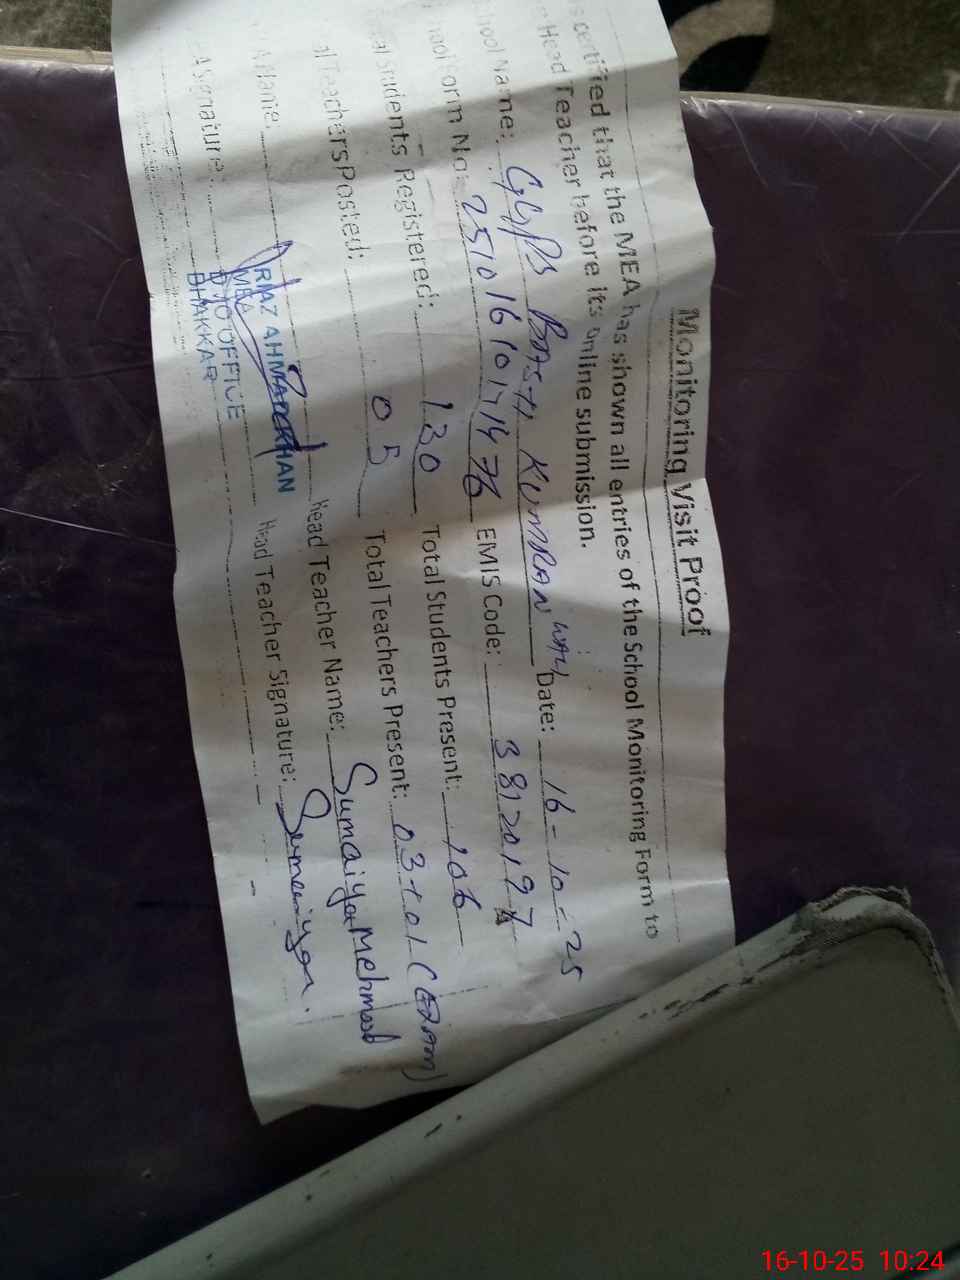 Monitoring Visit Proof
s certified that the MEA has shown all entries of the School Monitoring Form to
Head Teacher before its online submission.
hool Name: GGPS BASTI KUMRAN WALI Date: 16-10-25
hool Form No: EMIS Code: 38120197
al Students Registered: 130 Total Students Present: 106
al Teachers Posted: 05 Total Teachers Present: 03+01 (EXAM)
A Name: Head Teacher Name: Sumaiya Mehmood
A Signature: Head Teacher Signature: Sumaiya.
RIAZ AHMAD KHAN
MEA
OFFICE
BHAKKAR
16-10-25 10:24